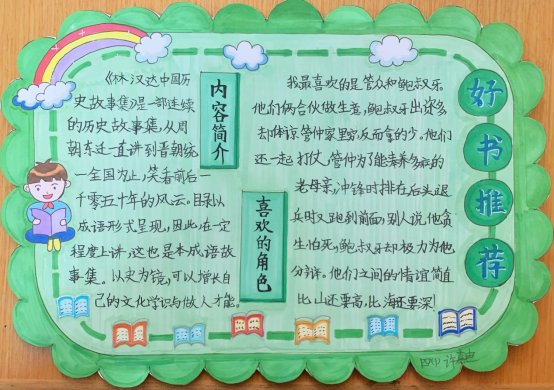 好书推荐
内容简介
《林汉达中国历
史故事集》是一部连续
的历史故事集,从周
朝东迁一直讲到晋朝统
一全国为止,笑看前后一
千零五十年的风云。目录以
成语形式呈现,因此,在一定
程度上讲,这也是本成语故
事集。以史为镜,可以增长自
己的文化学识与做人才能。
喜欢的角色
我最喜欢的是管仲和鲍叔牙。
他们俩合伙做生意,鲍叔牙出许多
却体谅管仲家里穷,反而拿的少。他们
还一起打仗,管仲为了能奉养多病的
老母亲,冲锋时排在后头,退
兵时又跑到前面,别人说他贪
生怕死,鲍叔牙却极力为他
分辨。他们之间的情谊简直
比山还要高,比海还要深!